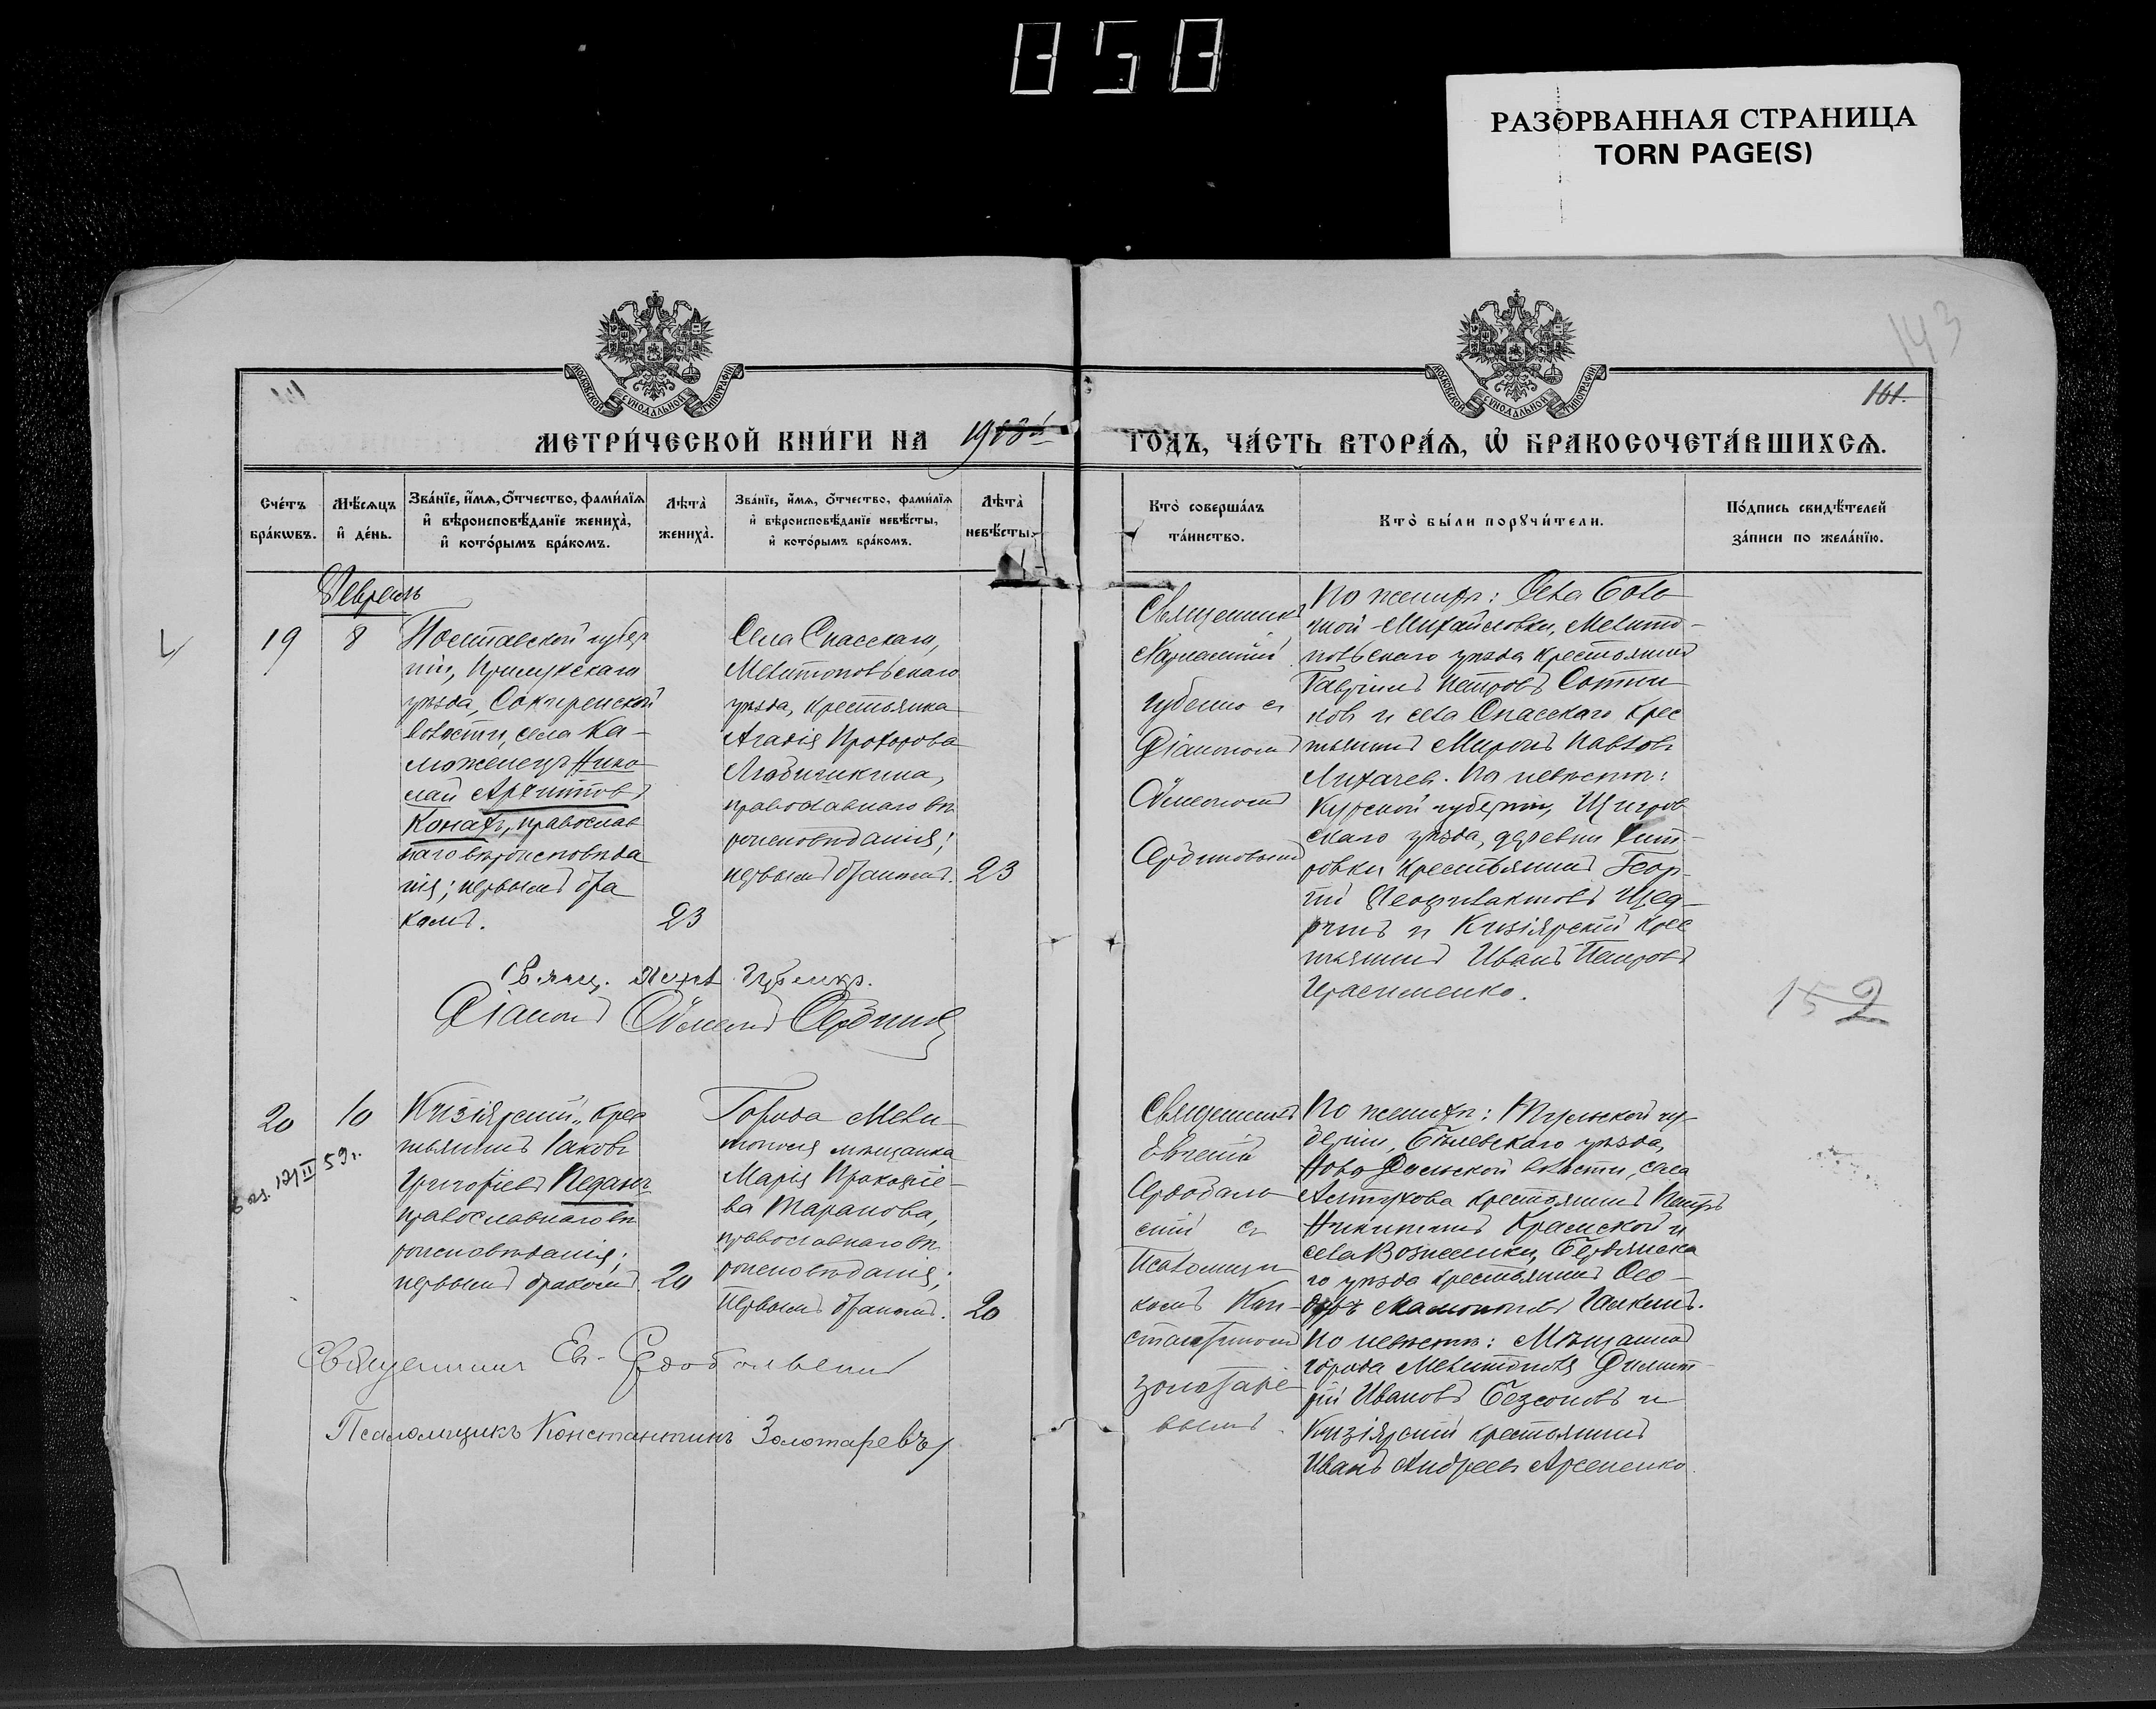 058
РАЗОРВАННАЯ СТРАНИЦА
TORN PAGE(S)
143
161.
МОСКОВСКОЙ СУНОДАЛЬНОЙ ТИПОГРАФІИ
МОСКОВСКОЙ СУНОДАЛЬНОЙ ТИПОГРАФІИ
МЕТРИ́ЧЕСКОЙ КНИ́ГИ НА 1908й
ГОДЪ, ЧА́СТЬ ВТОРА́Ѧ, Ѡ҆ БРАКОСОЧЕТА́ВШИХСѦ.
Сче́тъ
бра́кѡвъ.
Мѣ́сѧцъ
и҆ де́нь.
Зва́нїе, и҆́мѧ, ѻ҆́тчество, фами́лїѧ
и҆ вѣроисповѣ́данїе жениха̀,
и҆ кото́рымъ бра́комъ.
Лѣта̀
жениха̀.
Зва́нїе, и҆́мѧ, ѻ҆́тчество, фами́лїѧ
и҆ вѣроисповѣ́данїе невѣ́сты,
и҆ кото́рымъ бра́комъ.
Лѣта̀
невѣ́сты.
Кто̀ соверша́лъ
та́инство.
Кто̀ бы́ли порꙋчи́тели.
По́дпись свидѣ́телей
за́писи по жела́нїю.
Февраль
19
8
Полтавской губер
ніи, Прилукскаго
уѣзда, Сокиренской
волости, села Ка-
моженецъ Нико
лай Архиповъ
Конахъ, православ
наго вѣроисповѣда
нія; первымъ бра
комъ.
23
Села Спасскаго,
Мелитопольскаго
уѣзда, крестьянка
Агафія Прохорова
православнаго вѣ
роисповѣданія;
первымъ бракомъ.
23
Священникъ
Губенко съ
Діакономъ
По женихѣ: Села
чной-Михайловки, Мелито-
польскаго уѣзда крестьянинъ
Гавріилъ Петровъ Сотни-
ковъ и села Спасскаго крес
тьянинъ Миронъ Павловъ
Лихачев. По невѣстѣ:
Курской губерніи, Щигров
скаго уѣзда, деревни
ровки крестьянинъ Геор-
гій Феофилактовъ Щед-
ринъ и Кизіярскій крес
тьянинъ Иванъ Петровъ
Герасименко.
Свящ. Губенко.
Діаконъ
152
20
10
12/II 59г.
Кизіярскій крес
тьянинъ Іаковъ
Григорьевъ Педанъ
православнаго вѣ
роисповѣданія;
первымъ бракомъ.
20
Города Мели-
тополя мѣщанка
Марія Прокопіе-
ва Таранова,
православнаго вѣ
роисповѣданія;
первымъ бракомъ.
20
Священникъ
Евгеній
Сердобольскій съ
Псаломщи-
комъ Кон-
стантиномъ
Золотаре-
вымъ.
По женихѣ: Тульской гу-
берніи, Бѣлевскаго уѣзда,
волости, села
Алтухова крестьянинъ Петръ
Никитинъ Крамской и
села Вознесенки, Бердянска
го уѣзда крестьянинъ Ѳео-
доръ Галкинъ.
По невѣстѣ: Мѣщанинъ
города Мелитополя Димит-
рій Ивановъ Безсоновъ и
Кизіярскій крестьянинъ
Иванъ Андреевъ Арсененко.
Священникъ Ев. Сердобольскій
Псаломщикъ Константинъ Золотаревъ